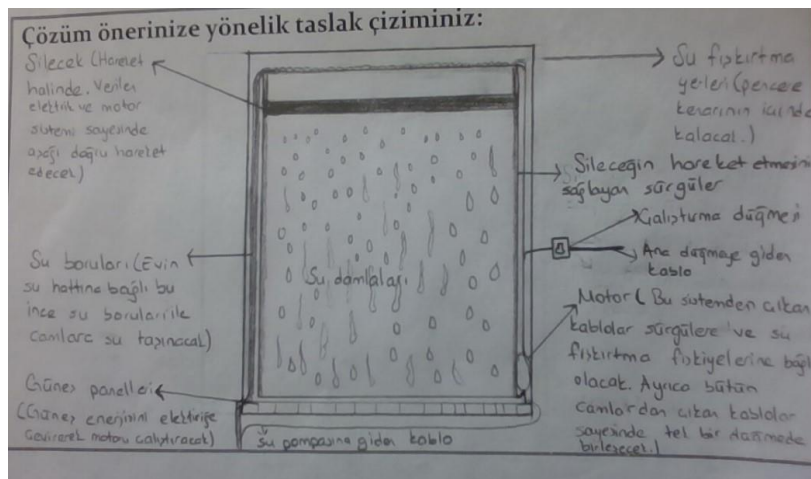 Çözüm önerinize yönelik taslak çiziminiz:
Silecek (Hareket
halinde. Verilen
elektrik ve motor
sistemi sayesinde
aşağı doğru hareket
edecek)
Su boruları (Evin
su hattına bağlı bu
ince su boruları ile
camlara su taşınacak)
Güneş panelleri
(Güneş enerjisini elektriğe
çevirerek motoru çalıştıracak)
Su damlaları
Su pompasına giden kablo
Su fışkırtma
yerleri (pencere
kenarının içinde
kalacak.)
Sileceğin hareket etmesini
sağlayan sürgüler
Çalıştırma düğmesi
Ana düğmeye giden
kablo
Motor (Bu sistemden çıkan
kablolar sürgülere ve su
fışkırtma fıskiyelerine bağlı
olacak. Ayrıca bütün
camlardan çıkan kablolar
sayesinde tek bir düğmede
birleşecek.)